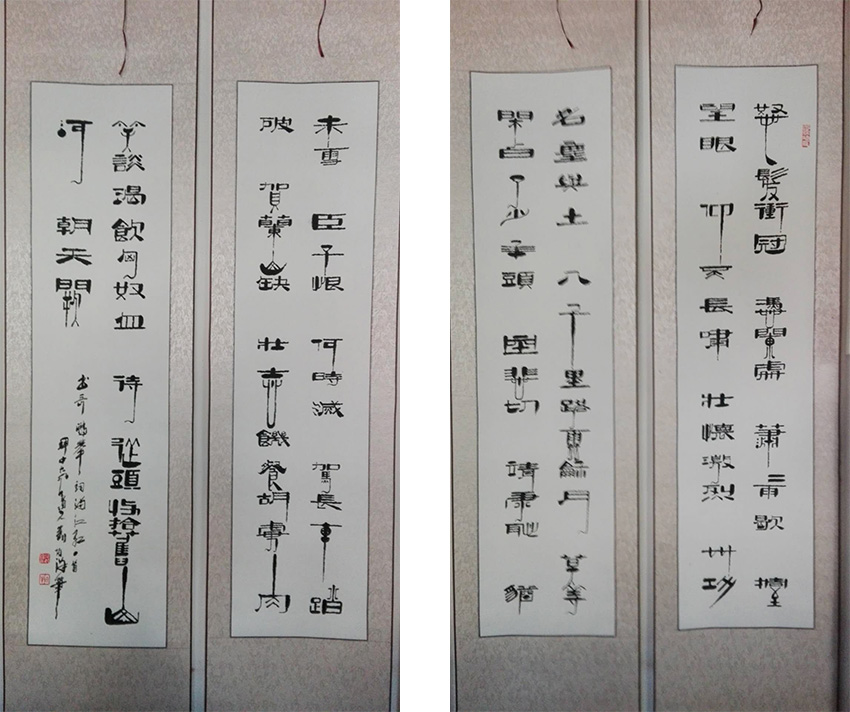 怒髮衝冠 憑闌處 蕭〻雨歇 擡
望眼 仰天長嘯 壯懷激烈 卅功
名塵與土 八千里路雲龢月 莫等
閑白了少年頭 空悲切 靖康恥 猶
未雪 臣子恨 何時滅 駕長車 踏
破 賀蘭山缺 壯志饑餐胡虜肉
笑談渴飲匈奴血 待從頭收拾舊山
河 朝天闕
書岳鵬舉詞滿江紅一首